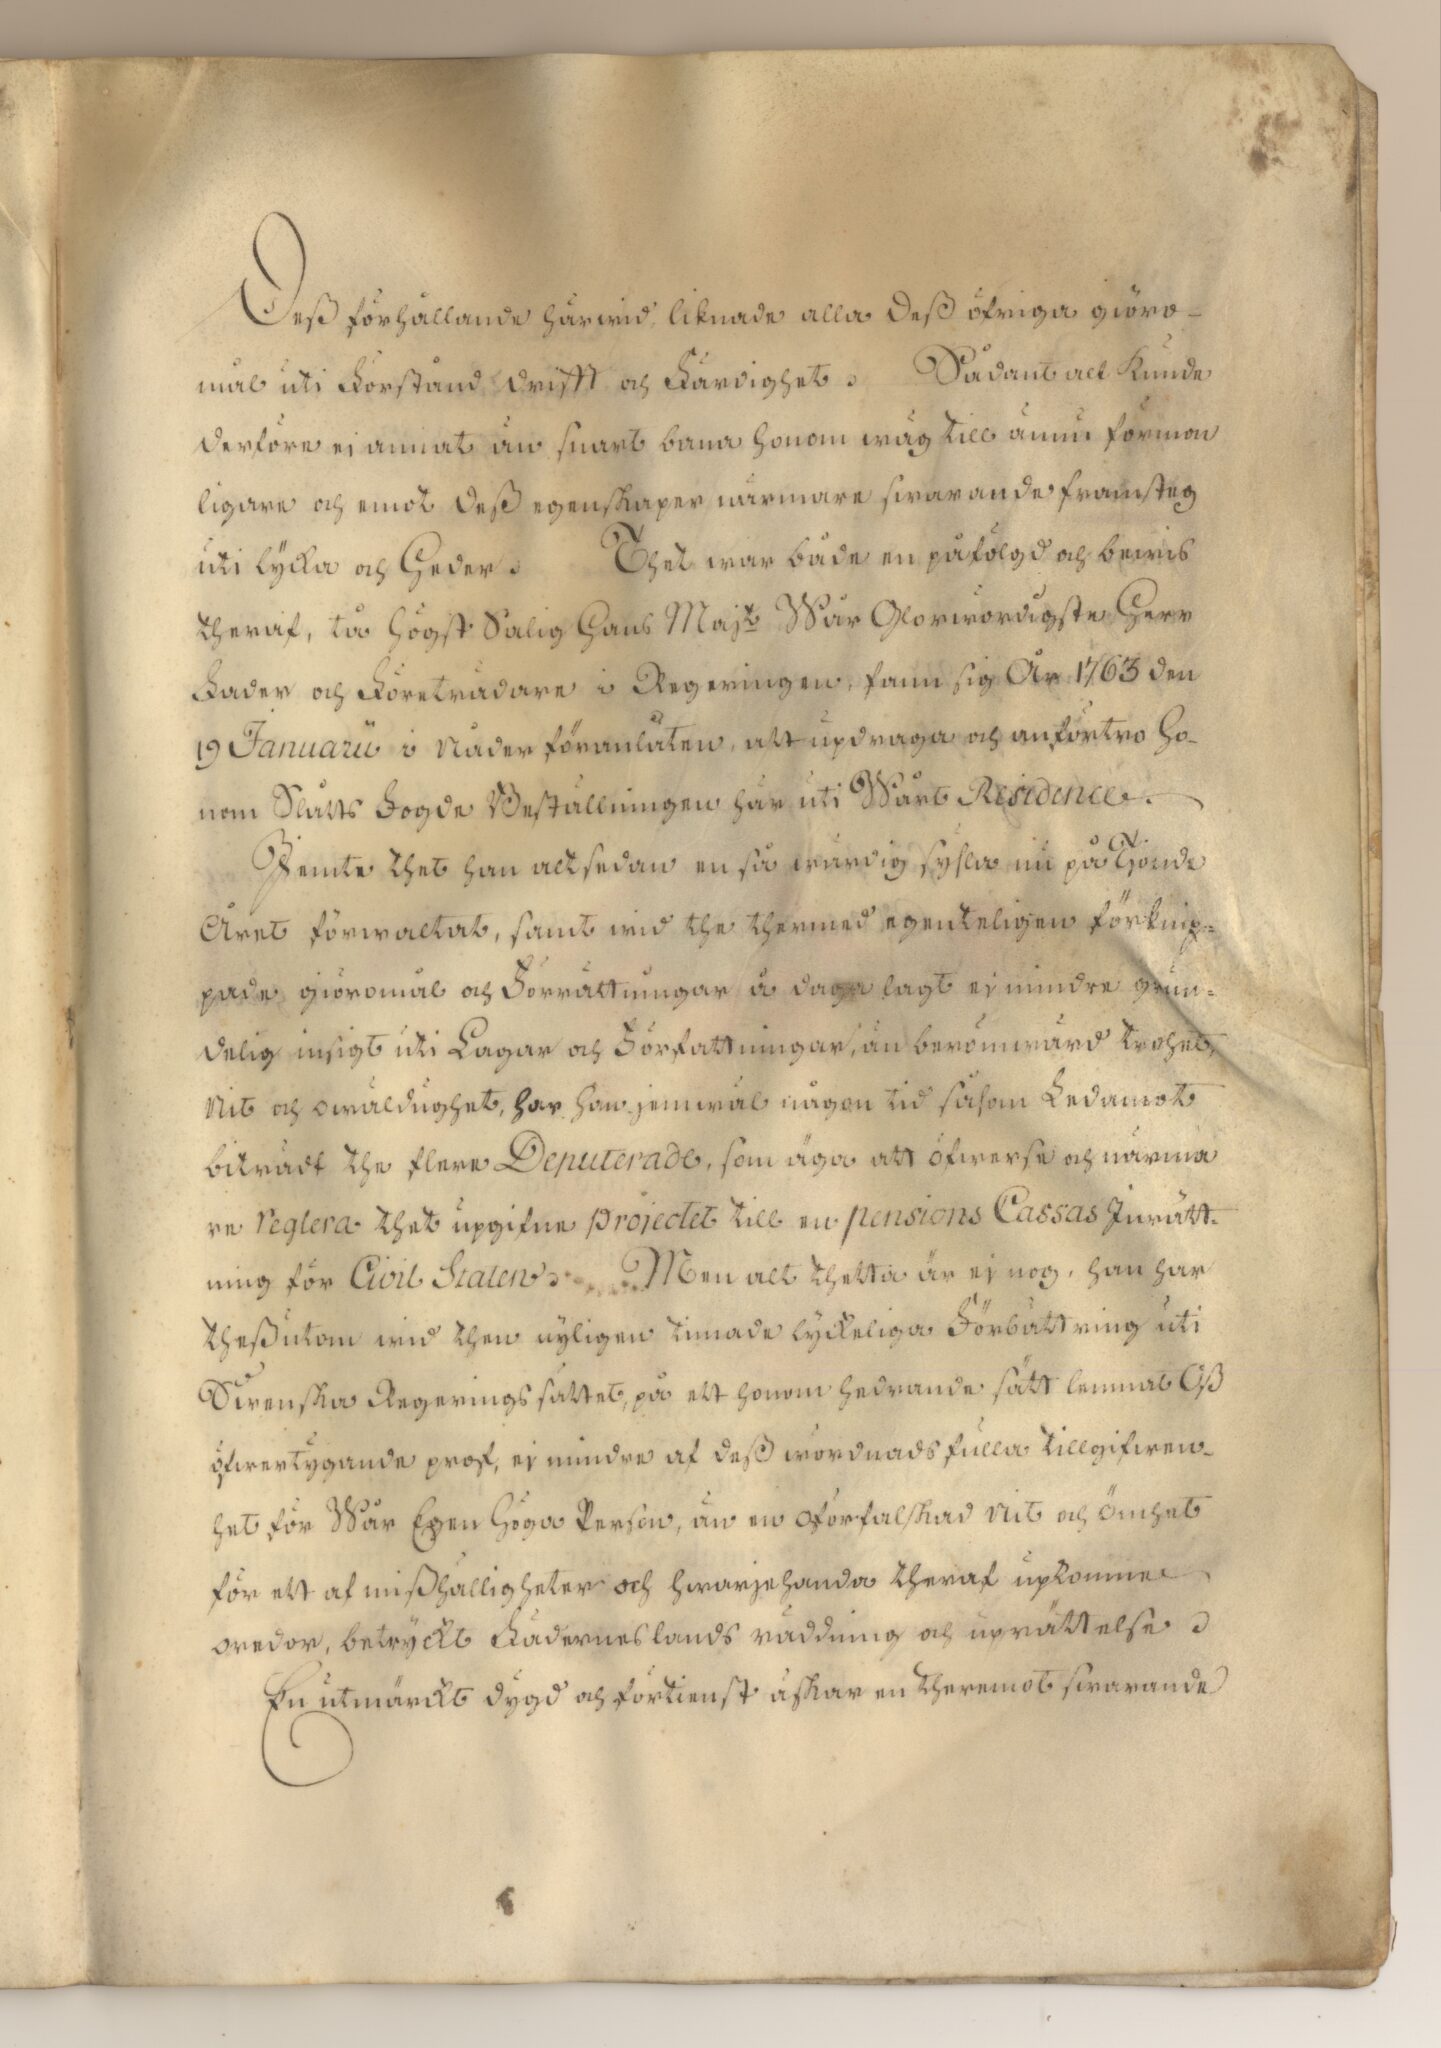 Deß förhållande härwid, liknade alla deß öfriga giöro-
mål uti Förstånd drifft och Färdighet. Sådant alt kunde
derföre ej annat än snart bana honom wäg till ännu förmon
ligare och emot deß egenskaper närmare swarande framsteg
uti lycka och Heder. Thet war både en påfölgd och bewis
theraf, tå Högst Salig Hans Maj:t Wår Glorwördigste Herr
Fader och Företrädare i Regeringen, fann sig År 1763 den
19 Januarii i Nåder föranlåten, att updraga och anförtro Ho-
nom Slåtts Fogde Beställningen här uti Wårt Residence.
Jemte thet han alt sedan en så wärdig syßla nu på Tijonde
Året förwaltat, samt wid the thermed egenteligen förknip-
pade giöromål och Förrättningar å daga lagt ej mindre grun-
delig insigt uti Lagar och Författningar, än berömwärd trohet,
Nit och owäldughet, har han jemwäl någon tid såsom Ledamot
biträdt the flere Deputerade, som äga att öfwerse och närma
re reglera thet upgifne projectet till en pensions Cassas Inrätt-
ning för Civil Staten. Men alt thetta är ej nog, han har
theßutom wid then nyligen timade lyckeliga Förbättring uti
Swenska Regeringssättet, på ett honom hedrande sätt lemnat Oß
öfwertygande prof, ej mindre af deß wördnadsfulla tillgifwen-
het för Wår Egen Höga Person, än en oförfalskad Nit och ömhet
för ett af mißhälligheter och hwarjehanda theraf upkomne
oredor, betryckt Fäderneslands räddning och uprättelse
En utmärckt dygd och förtienst äskar en theremot swarande